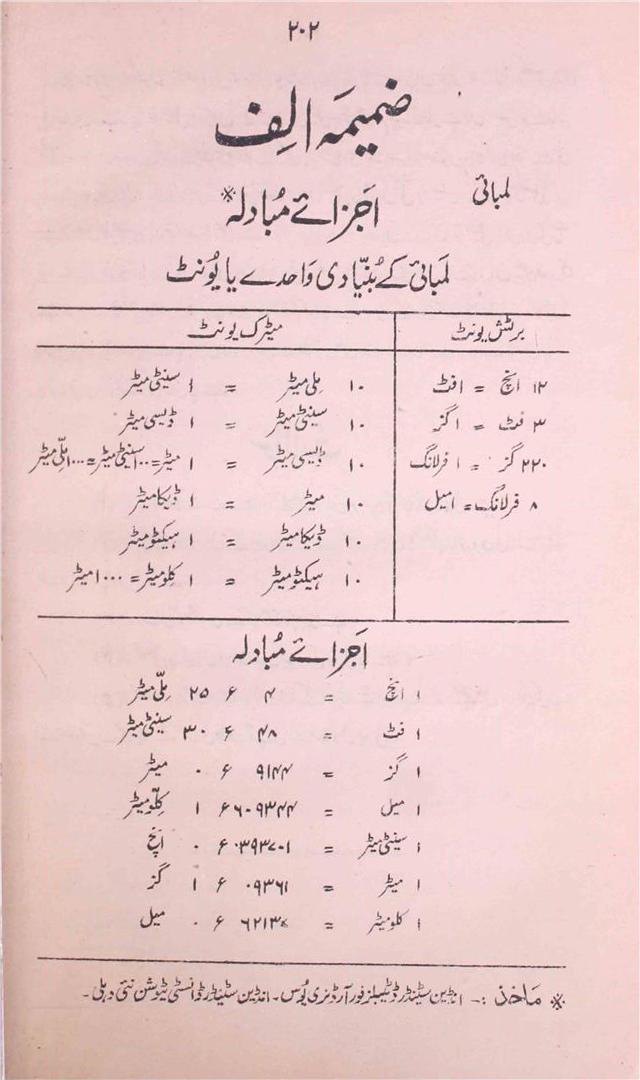 ۲۰۲
ضمیمہ الف
لمبائی
اجزائے مُبادلہ*
لمبائی کے بُنیادی واحدے یا یُونٹ
برٹش یونٹ
۱۲ انچ = ۱ فٹ
۳ فٹ = ۱ گز
۲۲۰ گز = ۱ فرلانگ
۸ فرلانگ = ۱ میل
میٹرک یونٹ
۱۰ مِلی میٹر = ۱ سینٹی میٹر
۱۰ سینٹی میٹر = ۱ ڈیسی میٹر
۱۰ ڈیسی میٹر = ۱ میٹر = ۱۰۰ سینٹی میٹر = ۱۰۰۰ ملّی میٹر
۱۰ میٹر = ۱ ڈیکا میٹر
۱۰ ڈیکا میٹر = ۱ ہیکٹو میٹر
۱۰ ہیکٹو میٹر = ۱ کلو میٹر = ۱۰۰۰ میٹر
اجزائے مُبادلہ
۱ انچ = ۴ ۶ ۲۵ ملّی میٹر
۱ فٹ = ۴۸ ۶ ۳۰ سینٹی میٹر
۱ گز = ۹۱۴۴ ۶ ۰ میٹر
۱ میل = ۶۰۹۳۴۴ ۶ ۱ کلّو میٹر
۱ سینٹی میٹر = ۳۹۳۷۰۱ ۶ ۰ انچ
۱ میٹر = ۰۹۳۶۱ ۶ ۱ گز
۱ کلو میٹر = ۶۲۱۳۷ ۶ ۰ میل
* ماخذ :- انڈین سٹینڈرڈ ٹیبلز فور آرڈنری پُرپس۔ انڈین سٹینڈرڈ انسٹی ٹیوشن نئی دہلی۔